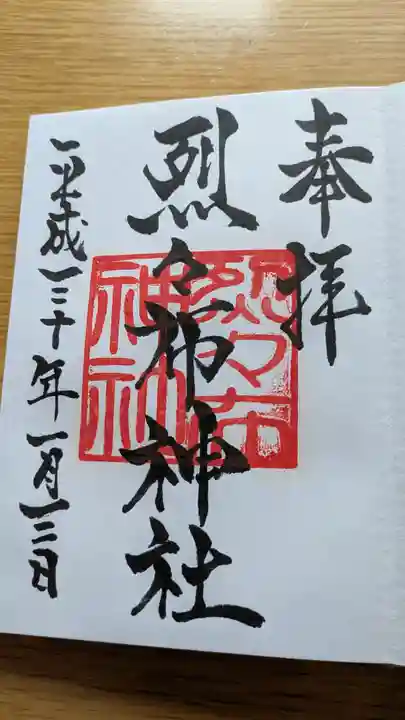 奉拝
烈々布神社
烈々布
神社
平成三十年一月三日